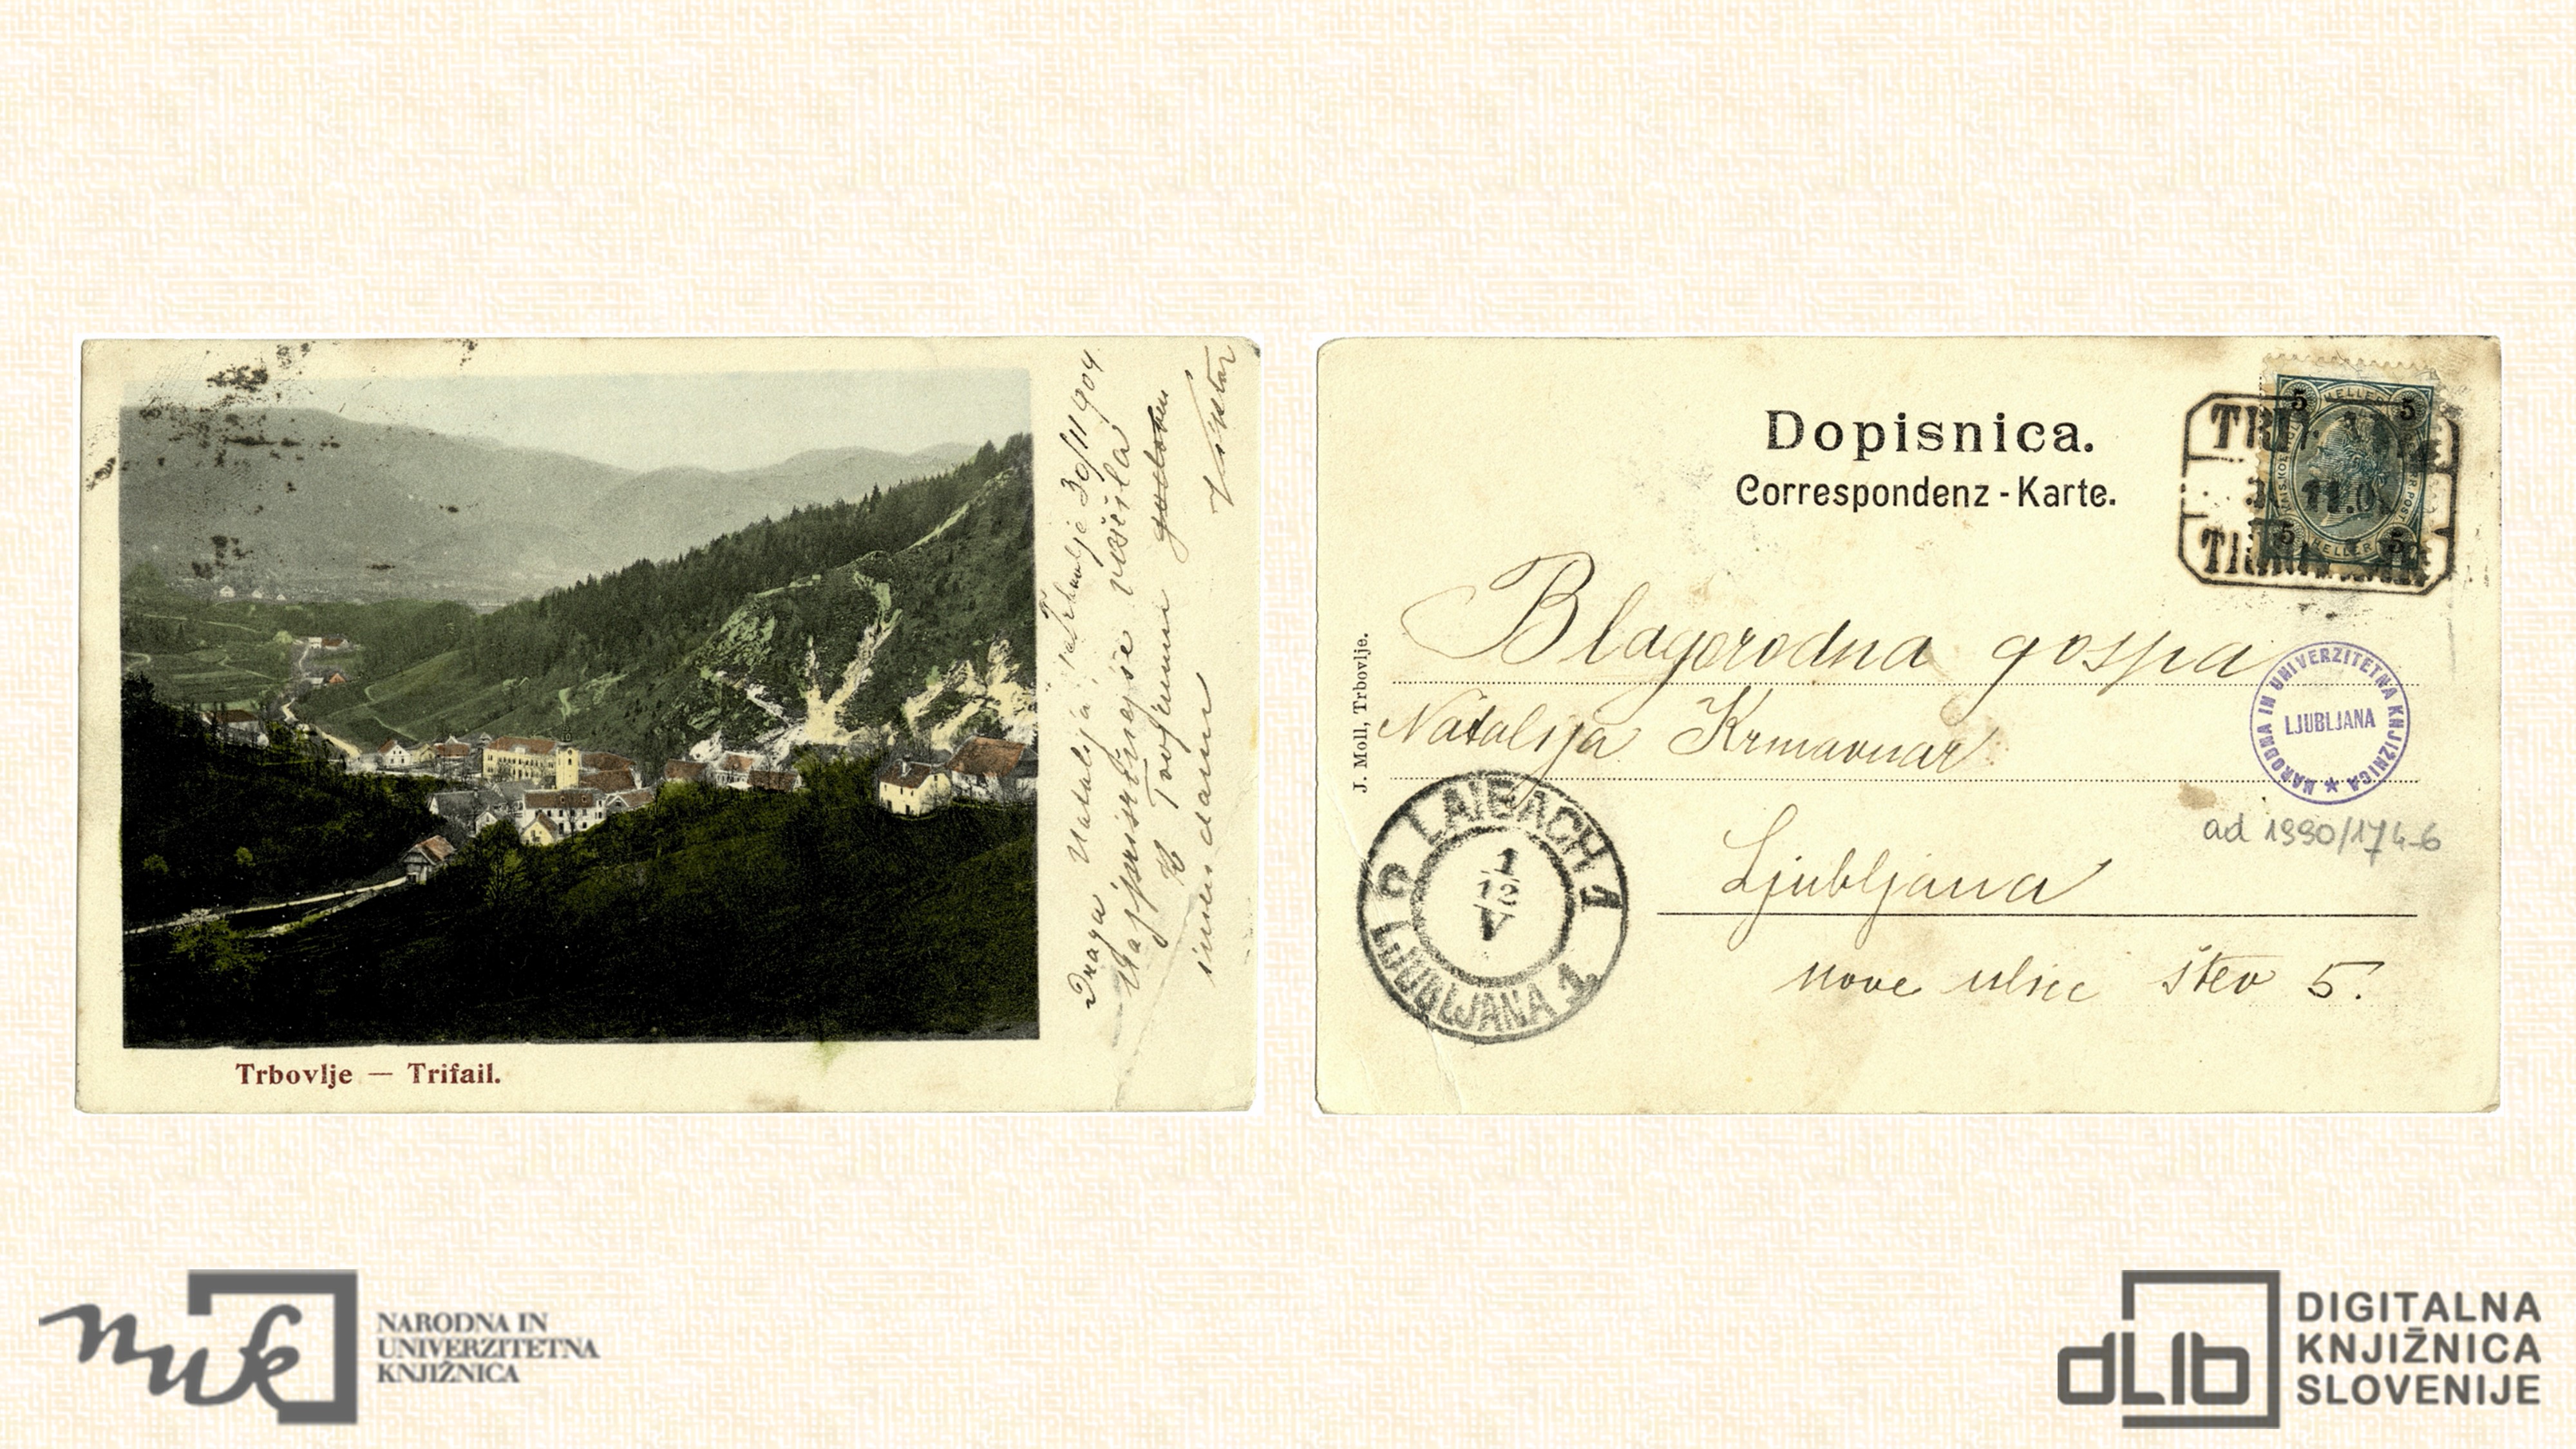 Trbovlje — Trifail.
Draga Natalija! Trbovlje 30/11 904
Najprisrčnejše voščila
K Tvojemu godovnem
imen danu
Viktor
Dopisnica.
Correspondenz-Karte.
5 HELLER 5
11.0
5 HELLER 5
Blagorodna gospa
Natalija Krmavnar
Ljubljana
nove ulice štev 5.
J. Moll, Trbovlje.
LAIBACH 1
1
12
V
LJUBLJANA 1
NARODNA IN UNIVERZITETNA KNJIŽNICA
LJUBLJANA
ad 1990/174-6
nuk
NARODNA IN
UNIVERZITETNA
KNJIŽNICA
dLib
DIGITALNA
KNJIŽNICA
SLOVENIJE